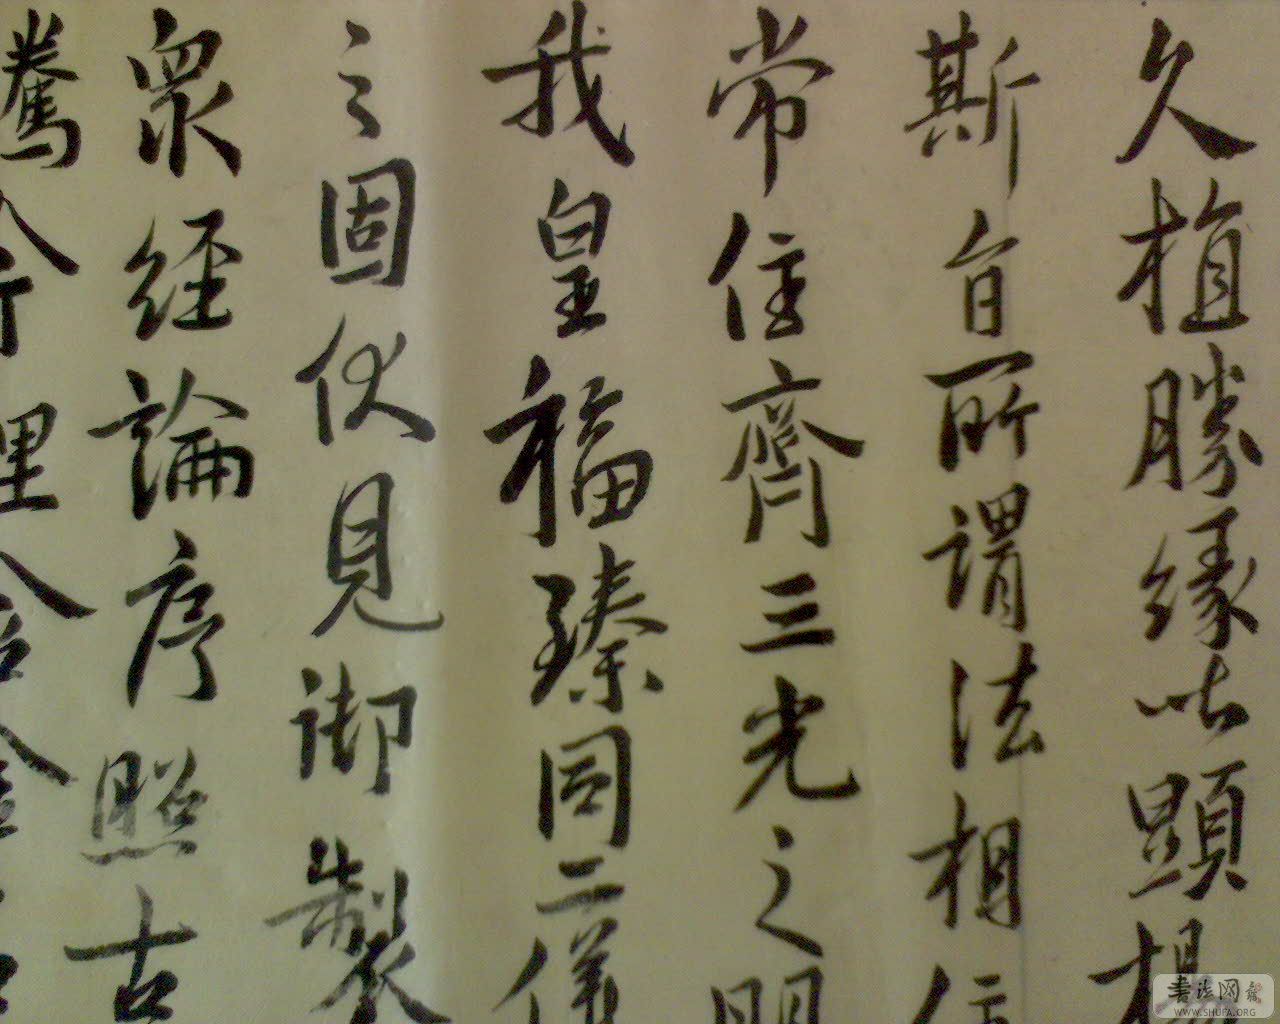 久植勝緣以顯揚
斯旨所謂法相
常住齊三光之明
我皇福臻同二儀
之固伏見御製
衆經論序照古
騰
书法网
WWW.SHUFA.ORG